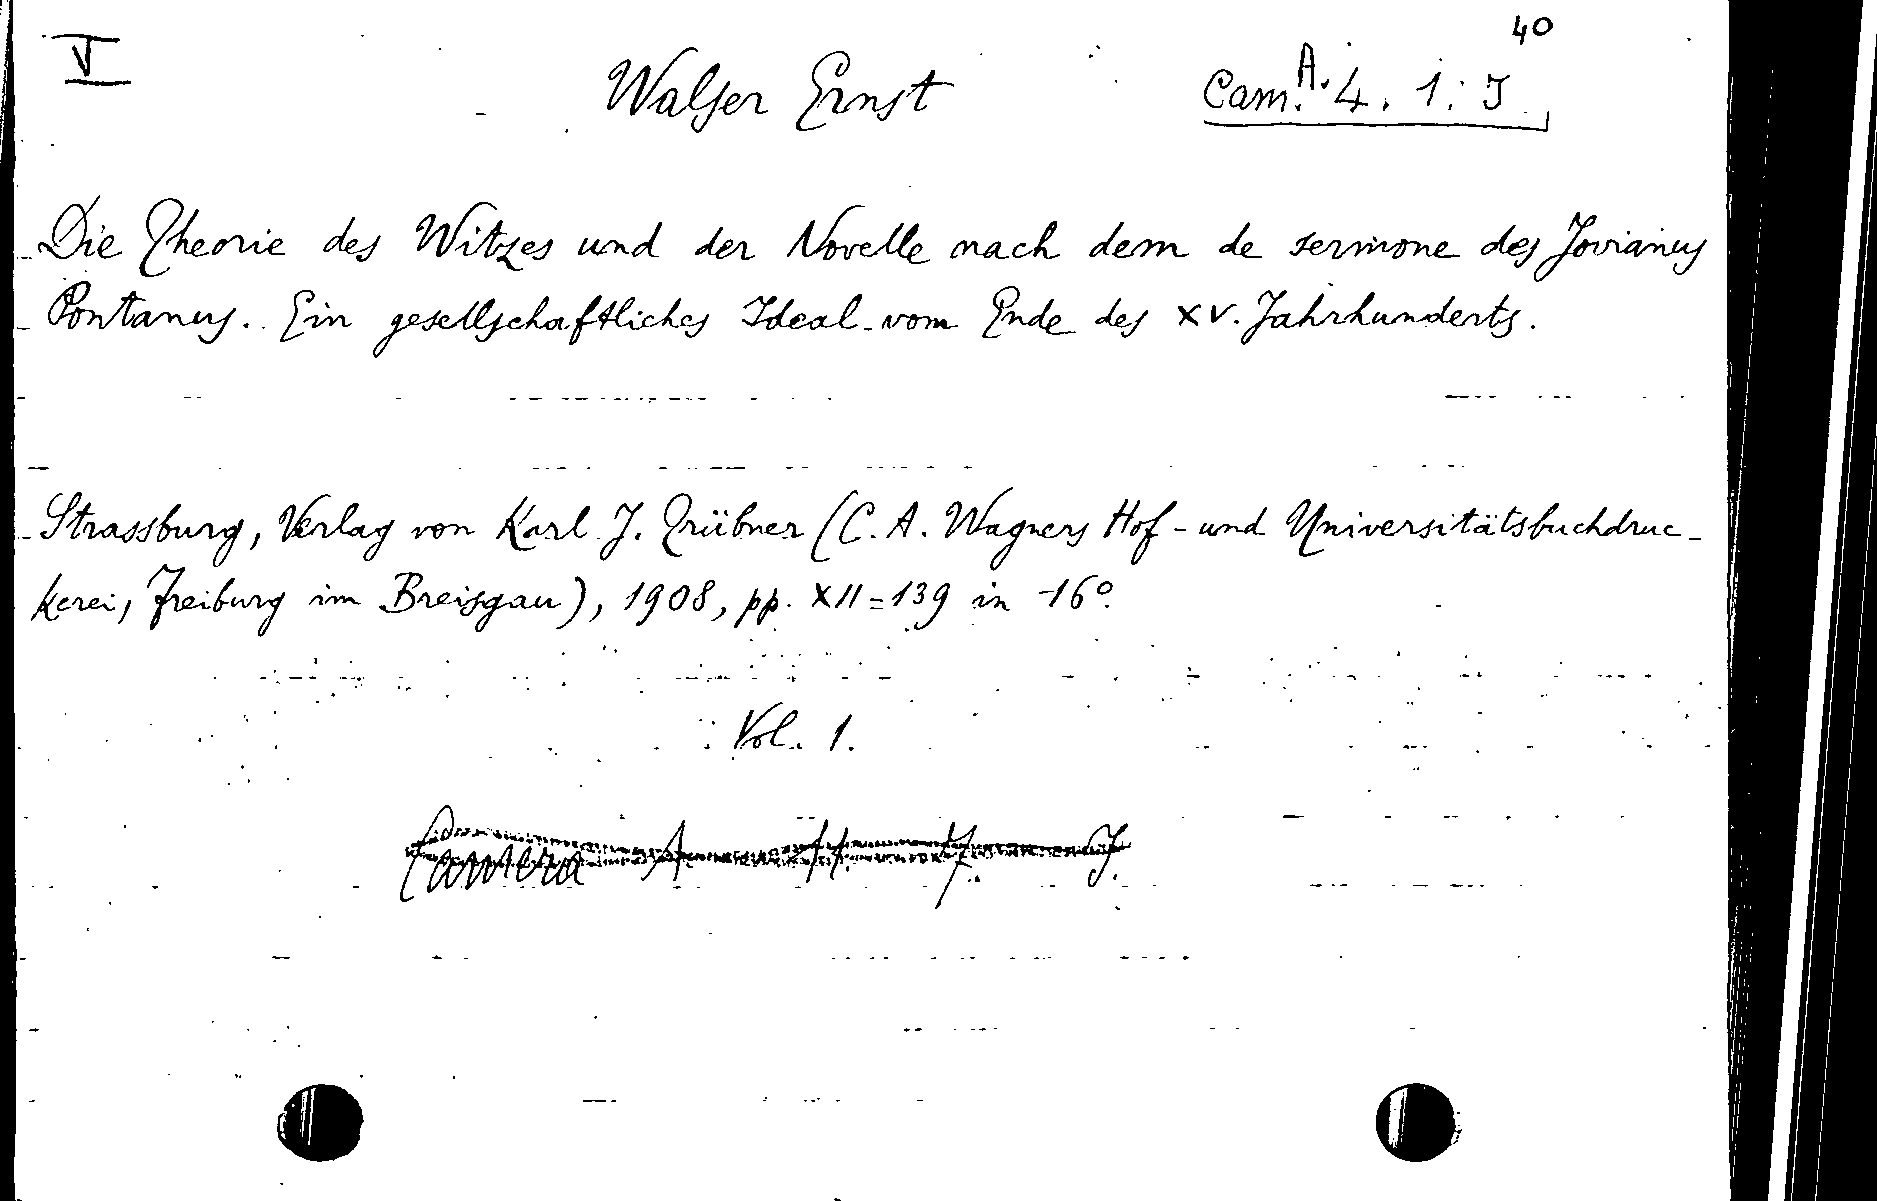 40
V
Walser Ernst
Cam. A. 4. 1. J
Die Theorie des Witzes und der Novelle nach dem de sermone des Jovianus
Pontanus. Ein gesellschaftliches Ideal vom Ende des XV. Jahrhunderts.
Strassburg, Verlag von Karl J. Trübner (C. A. Wagners Hof- und Universitätsbuchdruc-
kerei, Freiburg im Breisgau), 1908, pp. XII=139 in -16º.
Vol. 1.
Camera A